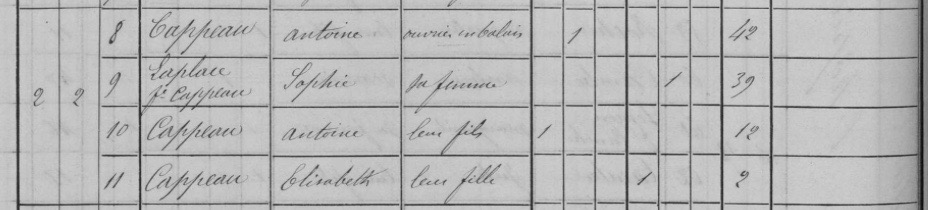 8 Cappeau antoine ouvrier en balais 1 42
2 2 9 Laplace fe Cappeau Sophie sa femme 1 39
10 Cappeau antoine leur fils 1 12
11 Cappeau Elisabeth leur fille 1 2